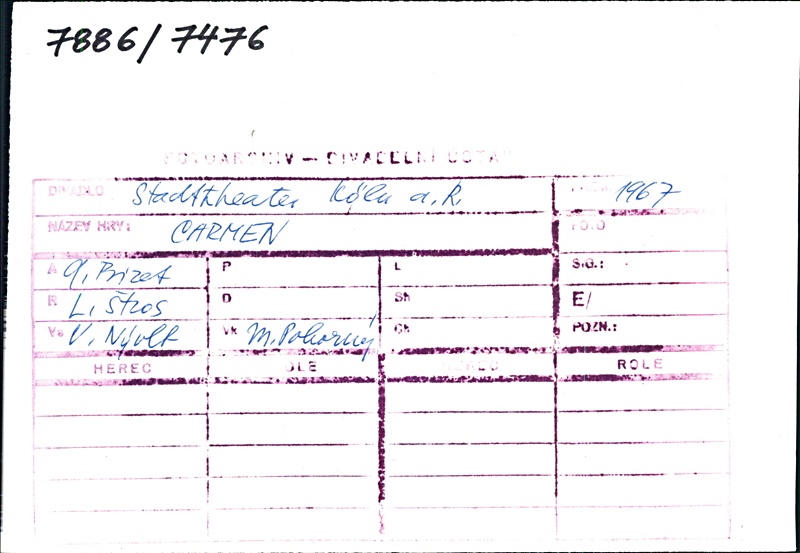 7886/7476
FOTOARCHIV — DIVADELNÍ ÚSTAV
DIVADLO Stadttheater Köln a. R. 1967
NÁZEV HRY: CARMEN FOTO
A G. Bizet P L SIG.:
R L. Štros D Sh E/
Vs V. Nývlt Vk M. Pokorný Ch POZN.:
HEREC ROLE HEREC ROLE